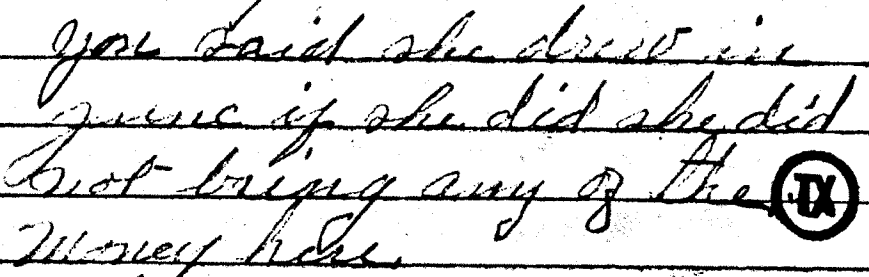 you said she drew in
june if she did she did
not bring any of the TX
money here.